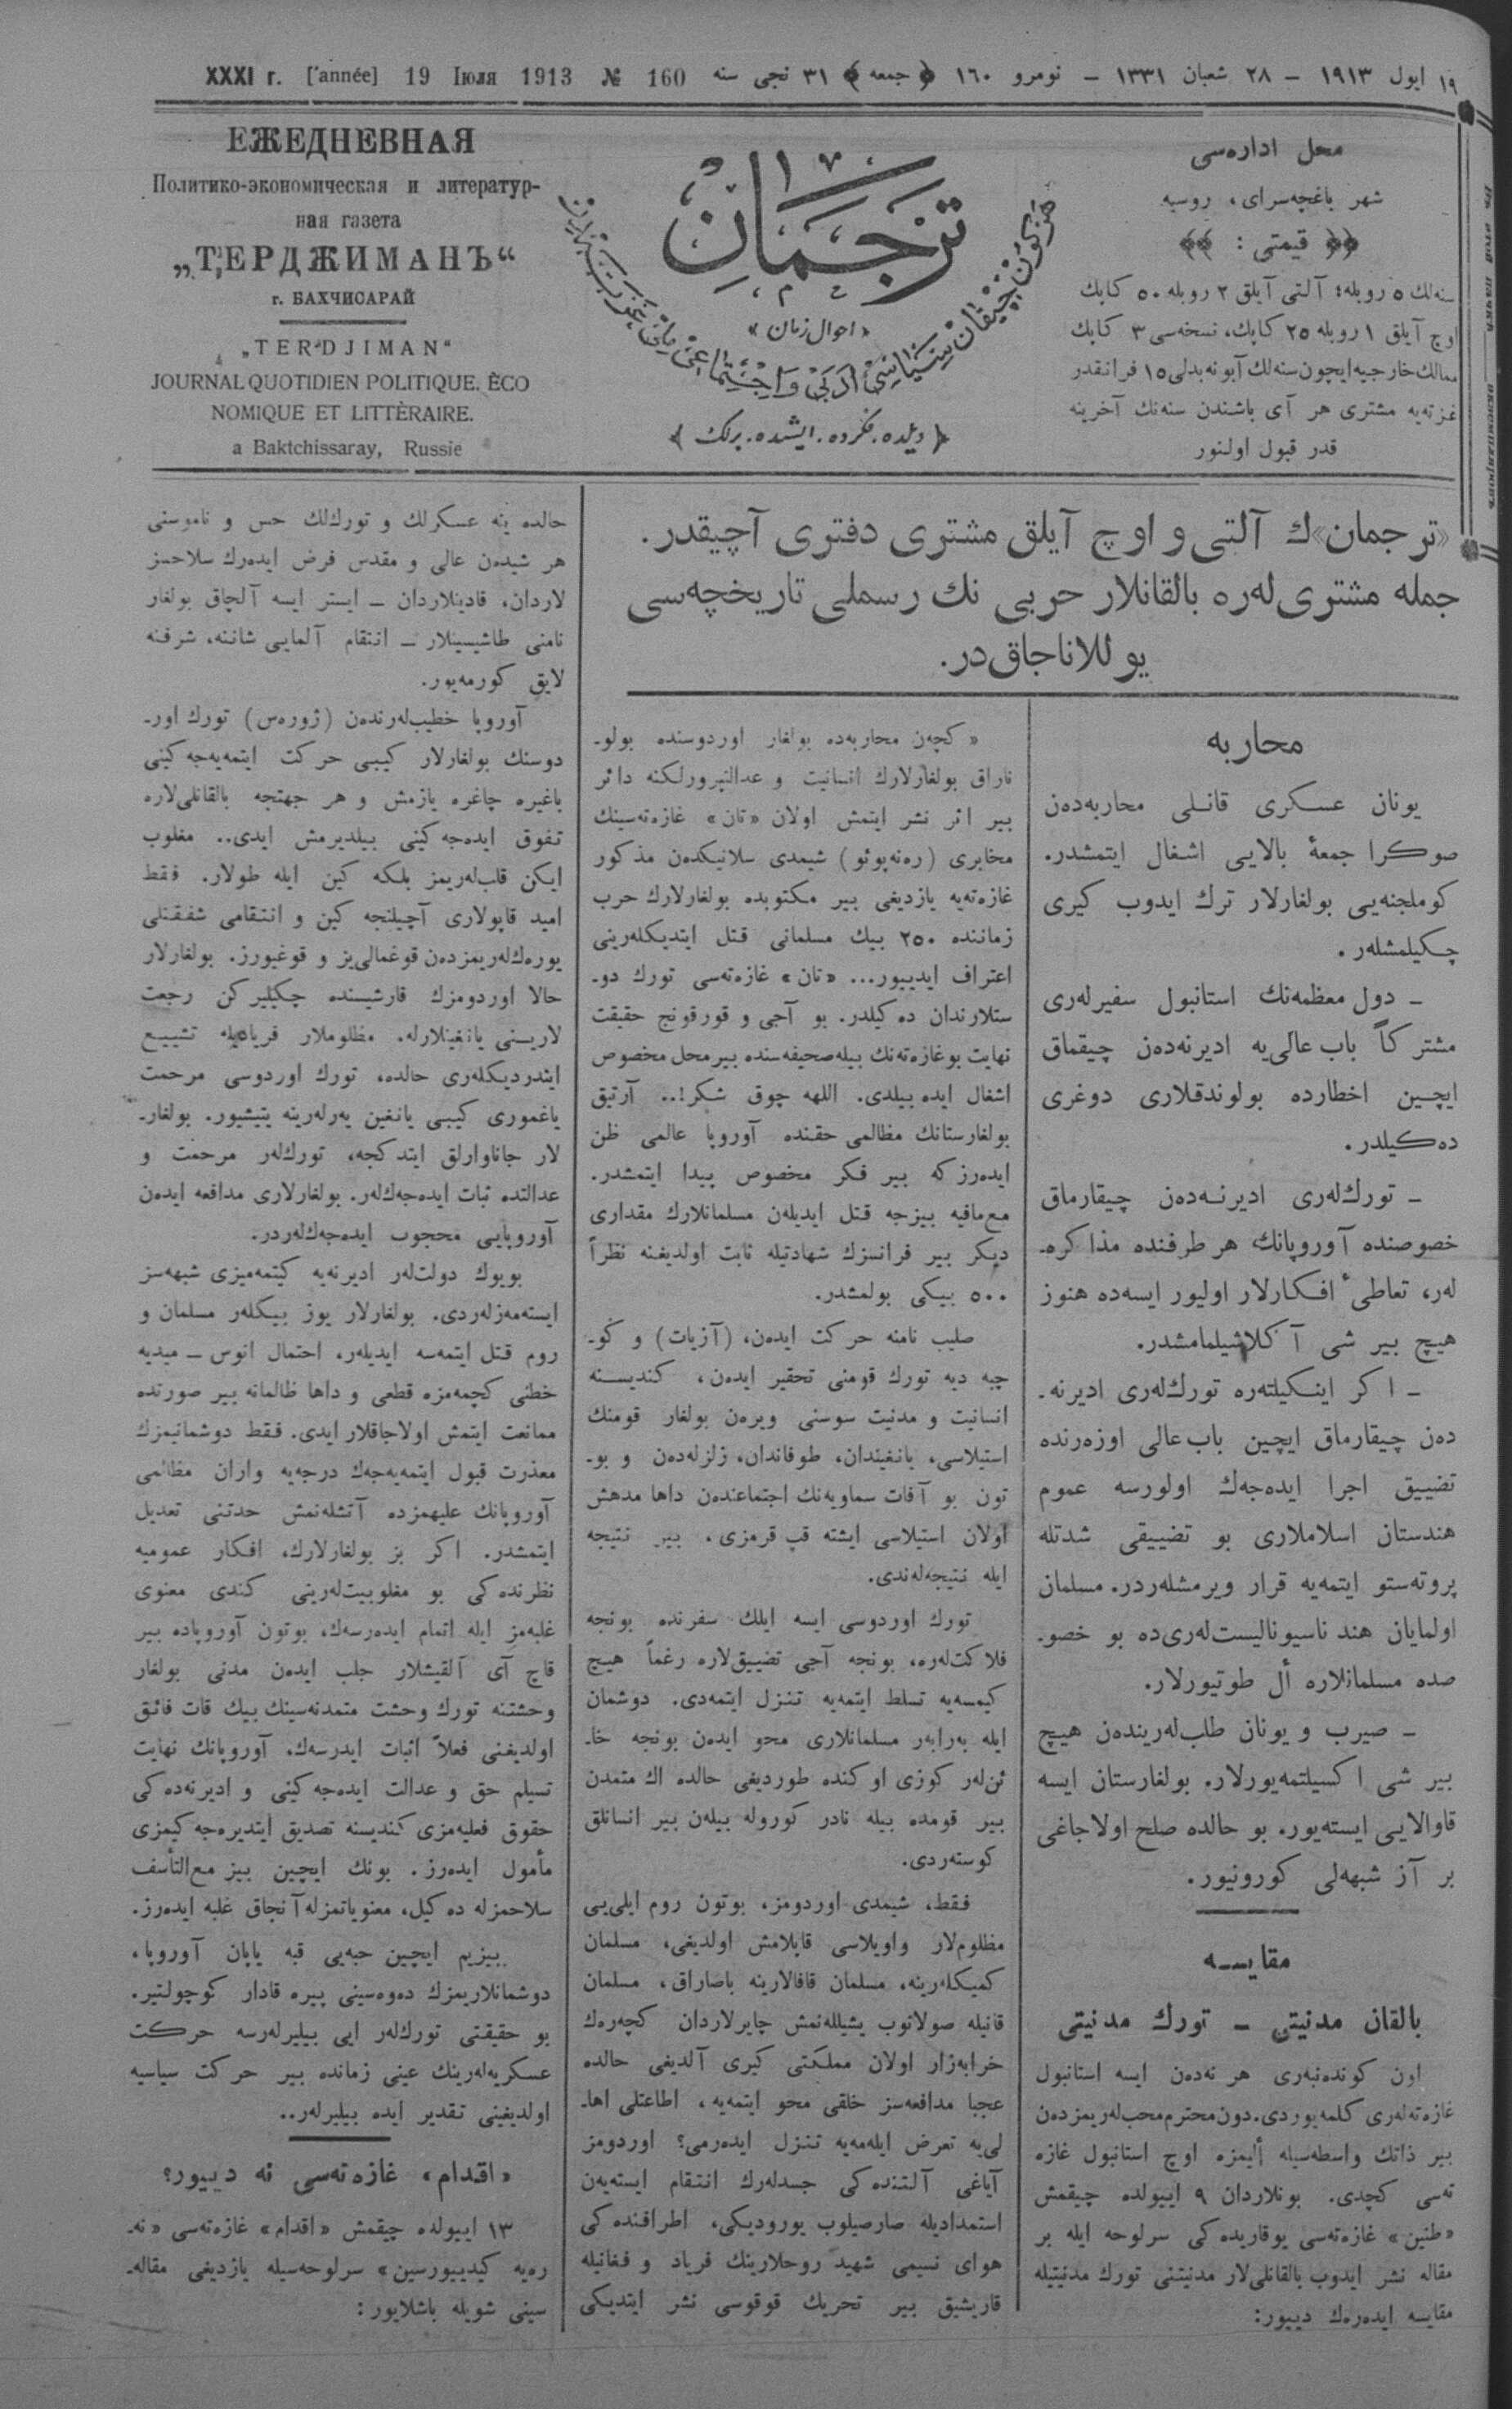 ١٩ ايول ١٩١٣ – ٢٨ شعبان ١٣٣١ – نومرو ١٦٠ ﴿ جمعه ﴾ ٣١ نجی سنه
XXXI г. [année] 19 Iюля 1913 № 160
محل اداره‌سی
شهر باغچه‌سرای، روسیه
قیمتی :
سنه‌لك ٥ روبله؛ آلتی آیلق ٢ روبله ٥٠ کاپك
اوچ آیلق ١ روبله ٢٥ کاپك، نسخه‌سی ٣ کاپك
ممالك خارجیه ایچون سنه‌لك آبونه بدلی ١٥ فرانقدر
غزته‌یه مشتری هر آی باشندن سنه‌نك آخرینه
قدر قبول اولنور
ترجمان
«احوال زمان»
﴿ دیلده. فکرده. ایشده. برلك ﴾
ЕЖЕДНЕВНАЯ
Политико-экономическая и литератур-
ная газета
„ТЕРДЖИМАНЪ“
г. БАХЧИСАРАЙ
„TERDJIMAN“
JOURNAL QUOTIDIEN POLITIQUE, ÈCO
NOMIQUE ET LITTÈRAIRE.
a Baktchissaray, Russie
«ترجمان»ك آلتی و اوچ آیلق مشتری دفتری آچیقدر.
جمله مشتری‌لەره بالقانلار حربی نك رسملی تاریخچه‌سی
یوللاناجاق‌در.
محاربه
یونان عسکری قانلی محاربه‌دەن
صوکرا جمعهٔ بالایی اشغال ایتمشدر.
کوملجنه‌یی بولغارلار ترك ایدوب کیری
چکیلمشلەر.
– دول معظمه‌نك استانبول سفیرلەری
مشترکاً باب عالی‌یه ادیرنه‌دەن چیقماق
ایچین اخطارده بولوندقلاری دوغری
دەکیلدر.
– تورك‌لەری ادیرنه‌دەن چیقارماق
خصوصنده آوروپانك هر طرفنده مذاکره‌ـ
لەر، تعاطیٔ افکارلار اولیور ایسه‌ده هنوز
هیچ بیر شی آکلاشیلمامشدر.
– اکر اینکیلتەره تورك‌لەری ادیرنه‌ـ
دەن چیقارماق ایچین باب عالی اوزەرنده
تضییق اجرا ایدەجەك اولورسه عموم
هندستان اسلاملاری بو تضییقی شدتله
پروتەستو ایتمه‌یه قرار ویرمشلەردر. مسلمان
اولمایان هند ناسیونالیست‌لەری‌ده بو خصوـ
صده مسلمانلاره أل طوتیورلار.
– صیرب و یونان طلب‌لەریندەن هیچ
بیر شی اکسیلتمەیورلار. بولغارستان ایسه
قاوالایی ایستەیور. بو حالده صلح اولاجاغی
بر آز شبهه‌لی کورونیور.
مقایسه
بالقان مدنیتی – تورك مدنیتی
اون کوندەنبەری هر نەدەن ایسه استانبول
غازەتەلەری کلمەیوردی. دون محترم محب‌لەریمزدەن
بیر ذاتك واسطه‌سیله ألیمزه اوچ استانبول غازه
تەسی کچدی. بونلاردان ٩ اییولده چیقمش
«طنین» غازەتەسی یوقاریده‌کی سرلوحه ایله بر
مقاله نشر ایدوب بالقانلی‌لار مدنیتنی تورك مدنیتیله
مقایسه ایدەرەك دییور:
«کچەن محاربه‌ده بولغار اوردوسنده بولوـ
ناراق بولغارلارك انسانیت و عدالتپرورلکنه دائر
بیر اثر نشر ایتمش اولان «تان» غازەتەسینك
مخابری (رەنەپوئو) شیمدی سلانیکدەن مذکور
غازەتەیه یازدیغی بیر مکتوبده بولغارلارك حرب
زماننده ٢٥٠ بیك مسلمانی قتل ایتدیکلەرینی
اعتراف ایدییور... «تان» غازەتەسی تورك دوـ
ستلارندان دەکیلدر. بو آجی و قورقونج حقیقت
نهایت بو غازەتەنك بیله صحیفه‌سنده بیر محل مخصوص
اشغال ایده بیلدی. اللهه چوق شکر!.. آرتیق
بولغارستانك مظالمی حقنده آوروپا عالمی ظن
ایدەرز که بیر فکر مخصوص پیدا ایتمشدر.
مع‌مافیه بیزجه قتل ایدیلەن مسلمانلارك مقداری
دیکر بیر فرانسزك شهادتیله ثابت اولدیغنه نظراً
٥٠٠ بیکی بولمشدر.
صلیب نامنه حرکت ایدەن، (آزیات) و کوـ
چبه دیه تورك قومنی تحقیر ایدەن، کندیسنه
انسانیت و مدنیت سوسنی ویرەن بولغار قومنك
استیلاسی، یانغیندان، طوفاندان، زلزله‌دەن و بوـ
تون بو آفات سماویه‌نك اجتماعندەن داها مدهش
اولان استیلاسی ایشته قپ قرمزی، بیر نتیجه
ایله نتیجه‌لەندی.
تورك اوردوسی ایسه ایلك سفرنده بونجه
فلاکت‌لەره، بونجه آجی تضییق‌لاره رغماً هیچ
کیمسه‌یه تسلط ایتمه‌یه تنزل ایتمەدی. دوشمان
ایله بەرابەر مسلمانلاری محو ایدەن بونجه خاـ
ئن‌لەر کوزی اوکنده طوردیغی حالده اك متمدن
بیر قومده بیله نادر کوروله بیلەن بیر انسانلق
کوستەردی.
فقط، شیمدی اوردومز، بوتون روم ایلی‌یی
مظلوم‌لار واویلاسی قاپلامش اولدیغی، مسلمان
کمیکلەرینه، مسلمان قافالارینه باصاراق، مسلمان
قانیله صولانوب یشیللەنمش چایرلاردان کچەرەك
خرابه‌زار اولان مملکتی کیری آلدیغی حالده
عجبا مدافعه‌سز خلقی محو ایتمه‌یه، اطاعتلی اهاـ
لی‌یه تعرض ایلەمەیه تنزل ایدەرمی؟ اوردومز
آیاغی آلتنده‌کی جسدلەرك انتقام ایستەیەن
استمدادیله صارصیلوب یورودیکی، اطرافنده‌کی
هوای نسیمی شهید روحلارینك فریاد و فغانیله
قاریشیق بیر تحریك قوقوسی نشر ایتدیکی
حالده ینه عسکرلك و تورك‌لك حس و ناموسنی
هر شیدەن عالی و مقدس فرض ایدەرك سلاحسز
لاردان، قادینلاردان – ایستر ایسه آلچاق بولغار
نامنی طاشیسینلار – انتقام آلمایی شاننه، شرفنه
لایق کورمەیور.
آوروپا خطیب‌لەرندەن (ژورەس) تورك اورـ
دوسنك بولغارلار کیبی حرکت ایتمەیەجەکینی
باغیره چاغره یازمش و هر جهتجه بالقانلی‌لاره
تفوق ایدەجەکینی بیلدیرمش ایدی.. مغلوب
ایکن قلب‌لەریمز بلکه کین ایله طولار. فقط
امید قاپولاری آچیلنجه کین و انتقامی شفقتلی
یورەك‌لەریمزدەن قوغمالی‌یز و قوغیورز. بولغارلار
حالا اوردومزك قارشیسنده چکیلیرکن رجعت
لارینی یانغینلارله. مظلوملار فریادیله تشییع
ایتدردیکلەری حالده، تورك اوردوسی مرحمت
یاغموری کیبی یانغین یەرلەرینه یتیشیور. بولغارـ
لار جاناوارلق ایتدکجه، تورك‌لەر مرحمت و
عدالتده ثبات ایدەجەك‌لەر. بولغارلاری مدافعه ایدەن
آوروپایی محجوب ایدەجەك‌لەردر.
بویوك دولت‌لەر ادیرنه‌یه کیتمەمیزی شبهه‌سز
ایستەمەزلەردی. بولغارلار یوز بیکلەر مسلمان و
روم قتل ایتمەسه ایدیلەر، احتمال انوس – میدیه
خطنی کچمەمزه قطعی و داها ظالمانه بیر صورتده
ممانعت ایتمش اولاجاقلار ایدی. فقط دوشمانیمزك
معذرت قبول ایتمەیەجەك درجه‌یه واران مظالمی
آوروپانك علیهمزده آتشلەنمش حدتنی تعدیل
ایتمشدر. اکر بز بولغارلارك، افکار عمومیه
نظرنده‌کی بو مغلوبیت‌لەرینی کندی معنوی
غلبه‌مز ایله اتمام ایدەرسەك، بوتون آوروپاده بیر
قاچ آی آلقیشلار جلب ایدەن مدنی بولغار
وحشتنه تورك وحشت متمدنه‌سینك بیك قات فائق
اولدیغنی فعلاً اثبات ایدرسەك. آوروپانك نهایت
تسلیم حق و عدالت ایدەجەکینی و ادیرنه‌ده‌کی
حقوق فعلیه‌مزی کندیسنه تصدیق ایتدیرەجەکیمزی
مأمول ایدەرز. بونك ایچین بیز مع‌التأسف
سلاحمزله دەکیل، معنویاتمزله آنجاق غلبه ایدەرز.
بیزیم ایچین حبه‌یی قبه یاپان آوروپا،
دوشمانلاریمزك دەوەسینی پیره قادار کوچولتیر.
بو حقیقتی تورك‌لەر ایی بیلیرلەرسه حرکت
عسکریه‌لەرینك عینی زمانده بیر حرکت سیاسیه
اولدیغینی تقدیر ایده بیلیرلەر..
«اقدام» غازەتەسی نه دییور؟
١٣ اییولده چیقمش «اقدام» غازەتەسی «نەـ
رەیه کیدییورسین» سرلوحه‌سیله یازدیغی مقاله‌ـ
سینی شویله باشلایور: